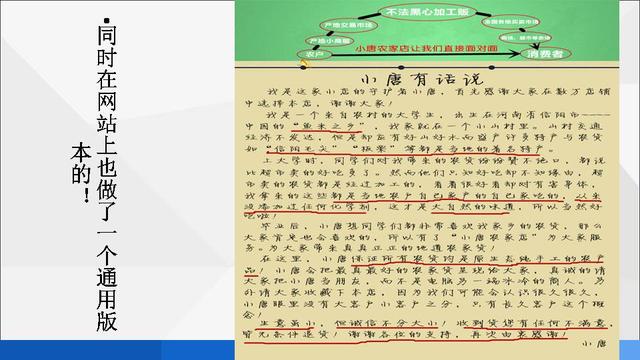 同时在网站上也做了一个通用版
本的！
不法黑心加工贩
产地交易市场
产地小商贩
农户
小唐农家店让我们直接面对面
消费者
小唐有话说
我是这家小店的守护者小唐，首先感谢大家在数万店铺
中选择本店，谢谢大家！
我是一个来自农村的大学生，出生在河南省信阳市——
中国的“鱼米之乡”，我家就在一个小山村里。山村交通
经济不发达，但是却蕴有好山好水而盛产许多特产与农货
如“信阳毛尖”“板栗”等都是当地的著名特产。
上大学时，同学们对我带来的农货纷纷赞不绝口，都说
比超市卖的好吃多了。然而他们只知好吃却不知缘由，超
市卖的农货都是经过加工的，看着很好看却对有害身体，
我带来的这些都是当地农户自己家产的自己家吃的，从来
没添加过任何化学剂，这才是大自然的味道，所以当然好
吃啦！
毕业后，小唐想同学们都非常喜欢我家乡的农货，那么
大家肯定也会喜欢的，所以有了“小唐农家店”为大家服
务。为大家带来真真正正的地道农家货！
在这里，小唐保证所有农货均是原生态纯手工的农产
品！小唐会把最真最好的农家货呈现给大家，真诚的请
大家把小唐当朋友，而不是电脑另一端冰冷的商人。另
外请大家收藏下本店，因为我们可能会认识很久很久，
小唐眼里没有大客户小客户之分，只有长久客户这个概
念！
生意虽小，但诚信不分大小！收到货您有任何不满意，
皆无条件退货！谢谢各位的支持，再次由衷感谢！
小唐